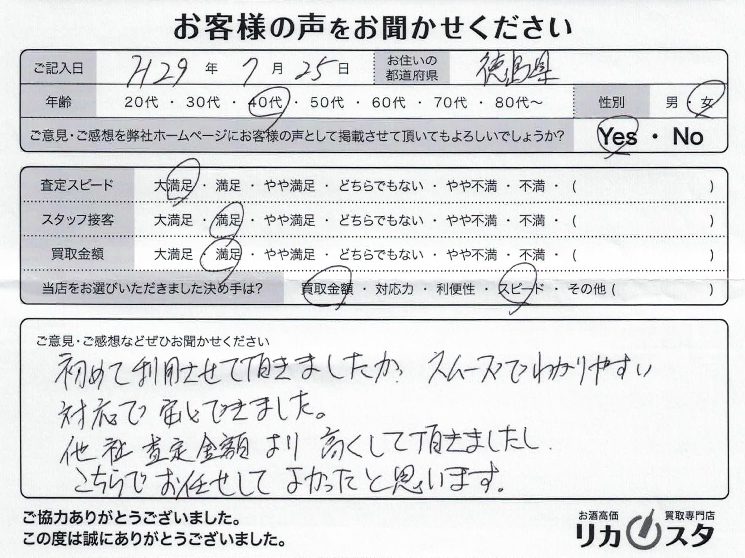 お客様の声をお聞かせください
ご記入日 H29 年 7 月 25 日 お住いの都道府県 徳島県
年齢 20代・30代・40代・50代・60代・70代・80代〜 性別 男・女
ご意見・ご感想を弊社ホームページにお客様の声として掲載させて頂いてもよろしいでしょうか? Yes・No
査定スピード 大満足・満足・やや満足・どちらでもない・やや不満・不満・( )
スタッフ接客 大満足・満足・やや満足・どちらでもない・やや不満・不満・( )
買取金額 大満足・満足・やや満足・どちらでもない・やや不満・不満・( )
当店をお選びいただきました決め手は? 買取金額・対応力・利便性・スピード・その他( )
ご意見・ご感想などぜひお聞かせください
初めて利用させて頂きましたが、スムーズでわかりやすい
対応で安心できました。
他社査定金額より高くして頂きましたし
こちらでお任せしてよかったと思います。
ご協力ありがとうございました。
この度は誠にありがとうございました。
お酒高価 買取専門店
リカスタ